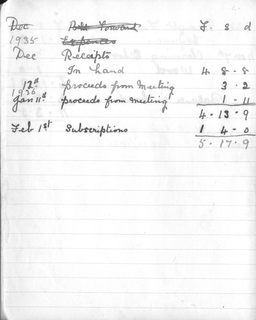 Dec Bt Forward £. s d
1935 Expences
Dec Receipts
In hand 4 . 8 . 8
12th proceeds from Meeting 3 . 2
1936
Jan 11th proceeds from meeting 1 - 11
4 . 13 . 9
Feb 1st Subscriptions 1 4 - 0
5 . 17 . 9